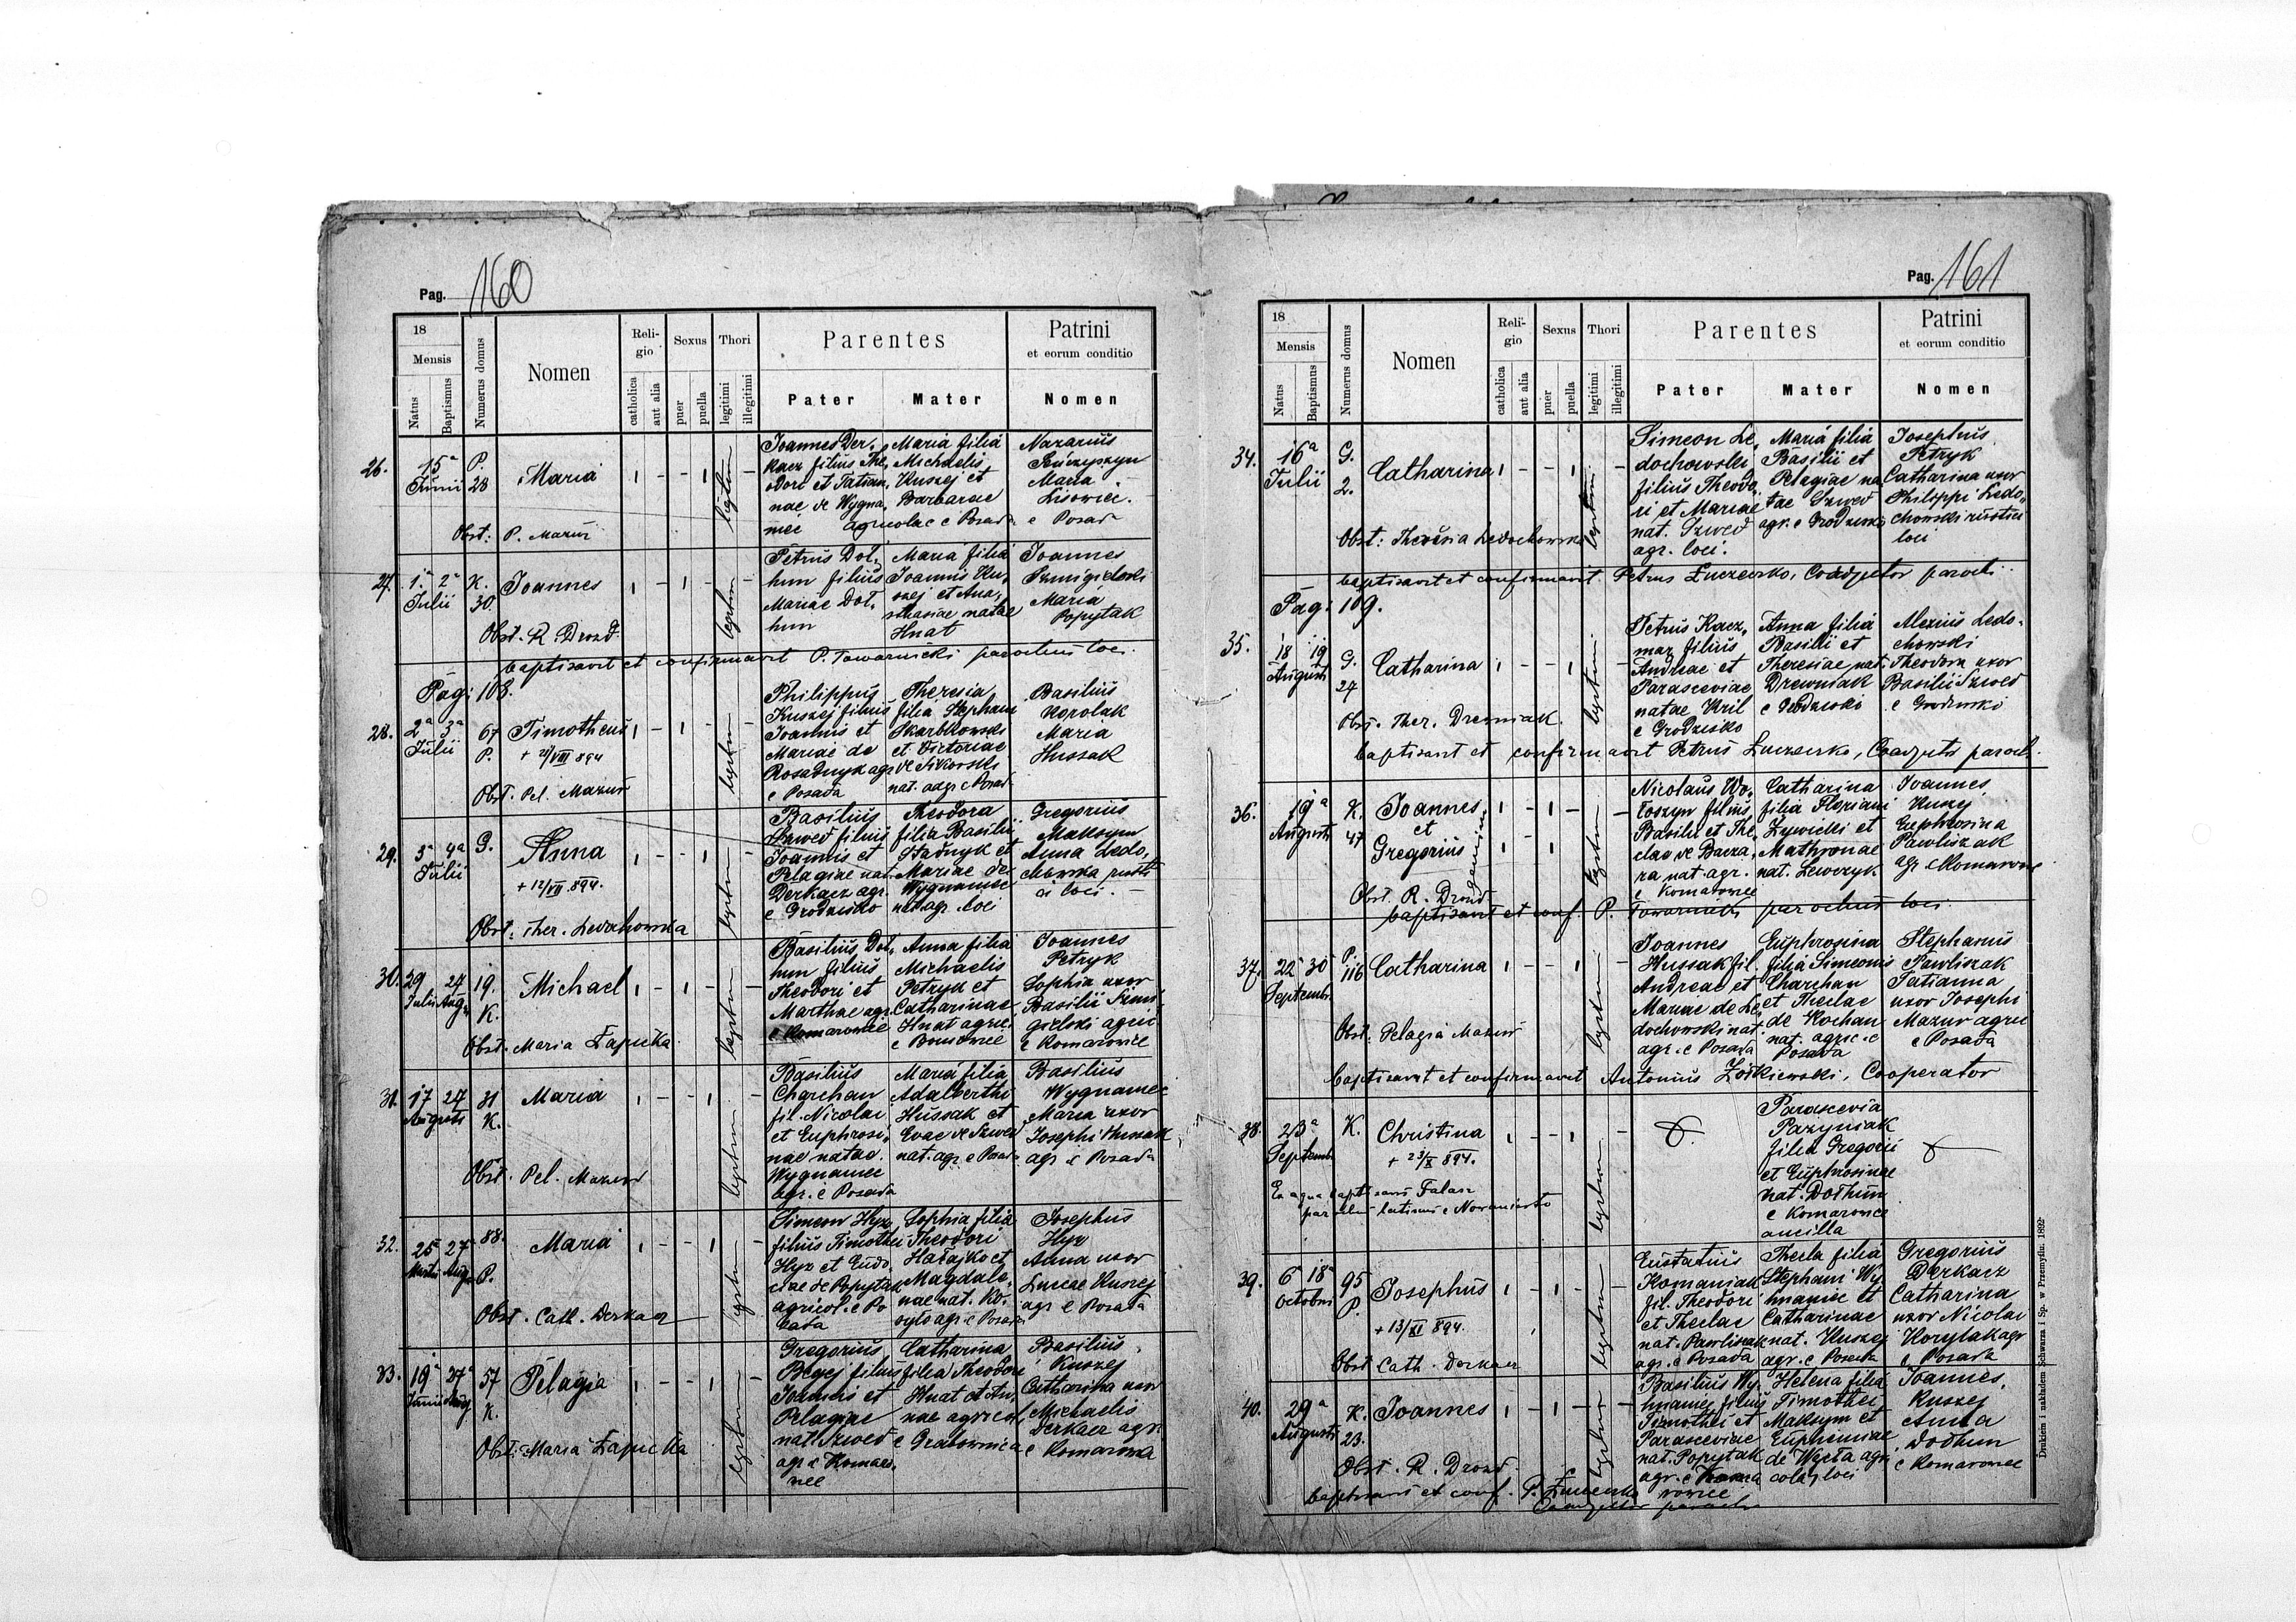 Pag. 160
18
Mensis
Natus
Baptismus
Numerus domus
Nomen
Religio
catholica
aut alia
Sexus
puer
puella
Thori
legitimi
illegitimi
Parentes
Pater
Mater
Patrini
et eorum conditio
Nomen
26. 15a Junii P. 28 Maria 1 - - 1 legtm -
Joannes Der,
kacz filius The,
odori et Tatian,
nae de Wygna,
niec agricolae e Posada
Maria filia
Michaelis
Kuszej et
Barbarae
Nazarius
Maria
Lisowiec.
e Posada
Obst: P. Mazur
27. 1a 2a Julii K. 30 Joannes 1 - 1 - legtm -
Petrus Doł,
hun filius
Mariae Doł,
hun
Maria filia
Joannis Ku,
szej et Ana,
sthasiae natae
Hnat
Joannes
Szmigielski
Maria
Popytak
Obst. R. Drozd
baptisavit et confirmavit P. Towarnicki parochus loci.
Pag: 108.
28. 2a 3a Julii 67 P. Timotheus 1 - 1 - legtm -
+ VIII 894
Philippus
Kuszej filius
Joannis et
Mariae de
Rosadnyk agr
e Posada
Theresia
filia Stephani
Skarbkowski
et Victoriae
de Sikorski
nat. agr e Posad
Basilius
Korolak
Maria
Hussak
Obst. Pel. Mazur
29. 3a 4a Julii G. Anna 1 - - 1 legtm -
+ 12/VII 894.
Basilius
Szwed filius
Joannis et
Pelagiae nat.
Derkacz agr.
e Grodzisko
Theodora
filia Basilii
Stadnyk et
Mariae de
Wygnaniec
nat agr. loci
Gregorius
Maksym
Anna Ledo,
chowska rusti
ci loci. -
Obst. Ther. Ledochowska
30. 29 Julii 27 Aug. 19. K. Michael 1 - 1 - legtm -
Basilius Doł,
hun filius
Theodori et
Marthae agr.
e Komarowice
Anna filia
Michaelis
Petryk et
Catharinae
Hnat agric.
Joannes
Petryk
Sophia uxor
Basilii Szmi
gielski agric
e Komarowice
Obst. Maria Łapicka
31. 17 27 Augusti 31 K. Maria 1 - - 1 legtm -
Basilius
Charchan
fil. Nicolai
et Euphrosi,
nae natae
Wygnaniec
agr. e Posada
Maria filia
Adalberthi
Hussak et
Evae de Szwed
nat. agr. e Posada
Basilius
Wygnaniec
Maria uxor
Josephi Hussak
agr e Posada
Obst. Pel. Mazur
32. 25 27 Aug. 88. P. Maria 1 - - 1 legtm -
Simeon Hyz
filius Timothei
Hyz et Eudo,
ciae de Popytak
agricol. e Po
sada
Sophia filia
Theodori
Hałajko et
Magdale,
nae nat. Ko,
agr e Posada
Josephus
Hyz
Anna uxor
Lucae Kuszej
agr e Posada
Obst. Cath. Derkacz
33. 19 Junii 27 Aug. 57 K. Pelagia 1 - - 1 legtm -
Gregorius
Begej filius
Joannis et
Pelagiae
nat. Szwed
agr e Komaro,
wice
Catharina
filia Theodori
Hnat et An,
nae agricol.
e Grabownica
Basilius
Kuszej
Catharina uxor
Michaelis
Derkacz agr.
e Komarowa
Obst. Maria Łapicka
Pag. 161
18
Mensis
Natus
Baptismus
Numerus domus
Nomen
Religio
catholica
aut alia
Sexus
puer
puella
Thori
legitimi
illegitimi
Parentes
Pater
Mater
Patrini
et eorum conditio
Nomen
34. 16a Julii G. 2. Catharina 1 - - 1 legtm -
Simeon Le,
dochowski
filius Theodo,
ri et Mariae
nat. Szwed
agr. loci.
Maria filia
Basilii et
Pelagiae na
tae Szwed
agr. e Grodzisko
Josephus
Petryk
Catharina uxor
Philippi Ledo,
chowski rustici
loci
Obst: Theresia Ledochowska
baptisavit et confirmavit Petrus Łuczeczko, Coadjutor parochi.
Pag: 109.
35. 18 19 Augusti G. 27 Catharina 1 - - 1 legtm -
Petrus Kacz,
mar filius
Andreae et
Parasceviae
natae Kril
e Grodzisko
Anna filia
Basilii et
Theresiae nat.
Drewniak
e Grodzisko
Alexius Ledo,
chowski
Theodora uxor
Basilii Szwed
e Grodzisko
Obst. Ther. Drewniak.
baptisavit et confirmavit Petrus Łuczeczko, Coadjutor paroch.
36. 19a Augusti K. 47 Joannes et Gregorius gemini 1 - 1 - legtm -
Nicolaus Wo,
łoszyn filius
Basilii et The,
clae de Bacza,
ra nat. agr.
e Komarowice
Catharina
filia Floriani
Żywicki et
Mathronae
nat. Lewczyk
Joannes
Kuszej
Euphrosina
Pawliszak
agr e Komarowice
Obst. R. Drozd
baptisavit et conf. P. Towarnicki parochus loci
37. 22 30 Septemb. P. 116 Catharina 1 - - 1 legtm -
Joannes
Hussak fil.
Andreae et
Mariae de Le,
dochowski nat.
agr. e Posada
Euphrosina
filia Simeonis
Charchan
et Theclae
de Kochan
nat. agric. e
Posada
Stephanus
Pawliszak
Tatianna
uxor Josephi
Mazur agric
e Posada
Obst. Pelagia Mazur
baptisavit et confirmavit Antonius Żółkiewski, Cooperator
38. 23a Septemb. K. Christina 1 - - 1 legtm -
+ 23/X 894.
Parascevia
Pazyniak
filia Gregorii
et Euphrosinae
nat. Dołhun
e Komarowice
ancilla
39. 6a 18a Octobris 95 P. Josephus 1 - 1 - legtm -
+ 13/XI 894.
Eustatius
Romaniak
fil. Theodori
et Theclae
nat. Pawliszak
agr. e Posada
Thecla filia
Stephani Wy
hnaniec et
Catharinae
nat. Kuszej
agr. e Posada
Gregorius
Derkacz
Catharina
uxor Nicolai
Korytak agr
e Posada
Obst. Cath. Derkacz
40. 29a Augusti K. 23. Joannes 1 - 1 - legtm -
Basilius Wy,
hnaniec filius
Timothei et
Parasceviae
nat. Popytak
agr. e Koma
rowice
Helena filia
Timothei
Maksym et
Euphemiae
agri
colar. loci
Joannes
Kuszej
Anna
Dołhun
e Komarowice
Obst. R. Drozd.
baptisavit et conf. P. Łuczeczko
Coadjutor parochi
Drukiem i nakładem Schwarza i Sp. w Przemyślu. 1892